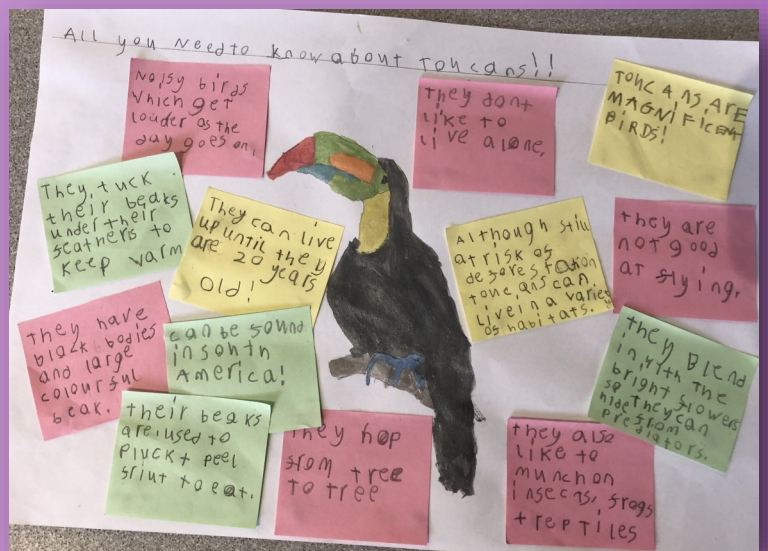 All you Need to know about Toucans!!
Noisy birds
which get
louder as the
day goes on.
they dont
like to
live alone.
TOUCANS ARE
MAGNIFICENT
BIRDS!
They tuck
their beaks
under their
feathers to
keep warm
They can live
up until they
are 20 years
old!
Although still
at risk of
deforestation
toucans can
live in a variety
of habitats.
they are
not good
at flying.
they have
black bodies
and large
colourful
beak.
can be found
in south
America!
they Blend
in with the
bright flowers
so they can
hide from
prediators.
their beaks
are used to
pluck + peel
friut to eat.
They hop
from tree
to tree
they also
like to
munch on
insects, frogs
+ repTiles